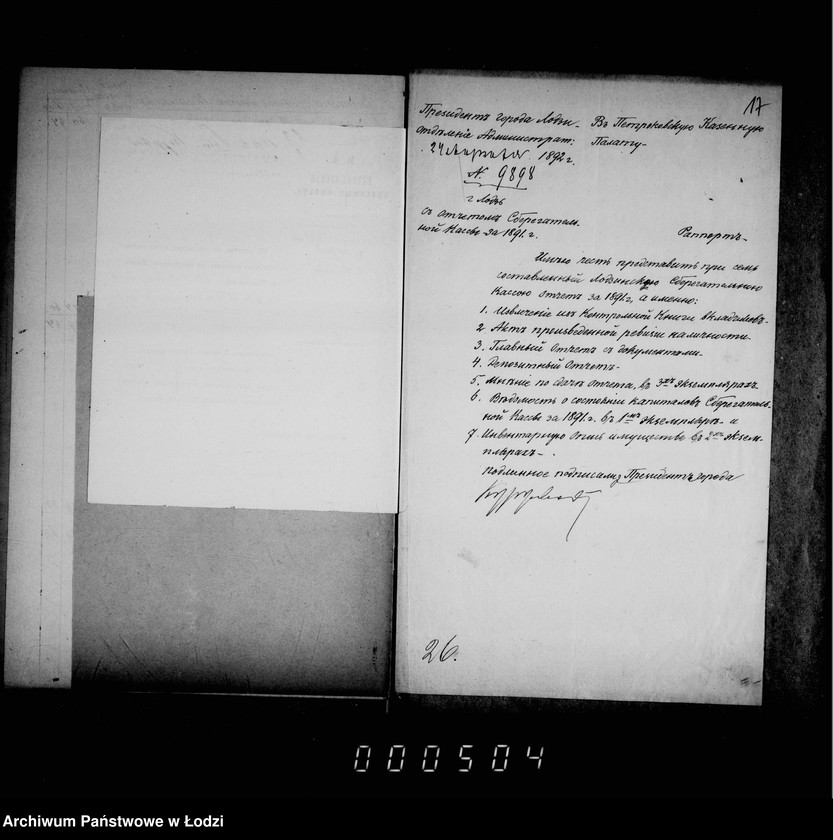 17
Президентъ города Лодзи.
Отдѣленіе Администрат:
24 1892 г.
№ 9898
г. Лодзь
Въ Петроковскую Казенную
Палату
съ отчетомъ Сберегатель-
ной Кассы за 1891 г.
Раппортъ.
Имѣю честь представить при семъ
составленный Лодзинскою Сберегательною
Кассою отчетъ за 1891 г, а именно:
1. Извлеченіе изъ Контрольной Книги вкладчиковъ.
2. Актъ произведенной ревизіи наличности.
3. Главный отчетъ съ документами.
4. Депозитный отчетъ.
5. Мнѣніе по сдачѣ отчета, въ 3хъ экземплярахъ
6. Вѣдомость о состояніи капиталовъ Сберегатель-
ной Кассы за 1891 г. въ 1мъ экземплярѣ и
7. Инвентарную опись имущества въ 2хъ экзем-
плярахъ.
Подлинное подписалъ Президентъ города
26.
000504
Archiwum Państwowe w Łodzi